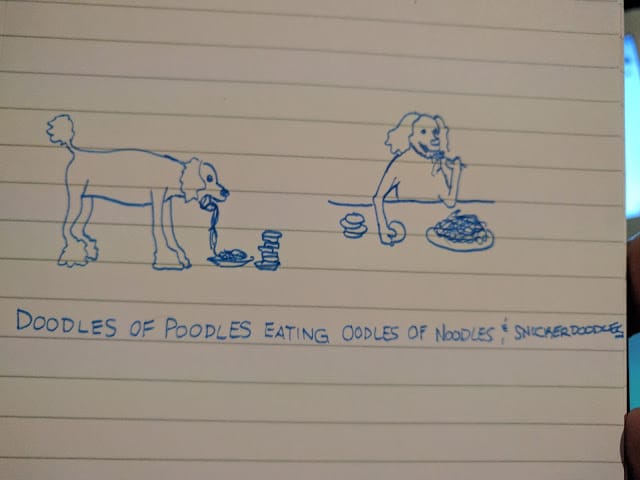 DOODLES OF POODLES EATING OODLES OF NOODLES & SNICKERDOODLES